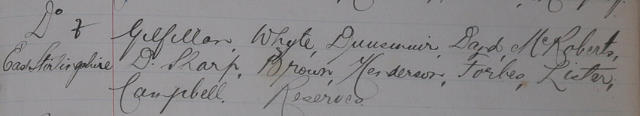 Do v Gilfillan, Whyte, Dunsmuir, Boyd, McRoberts,
East Stirlingshire Dr Sharp, Brown, Henderson, Forbes, Lister,
Campbell. Reserves